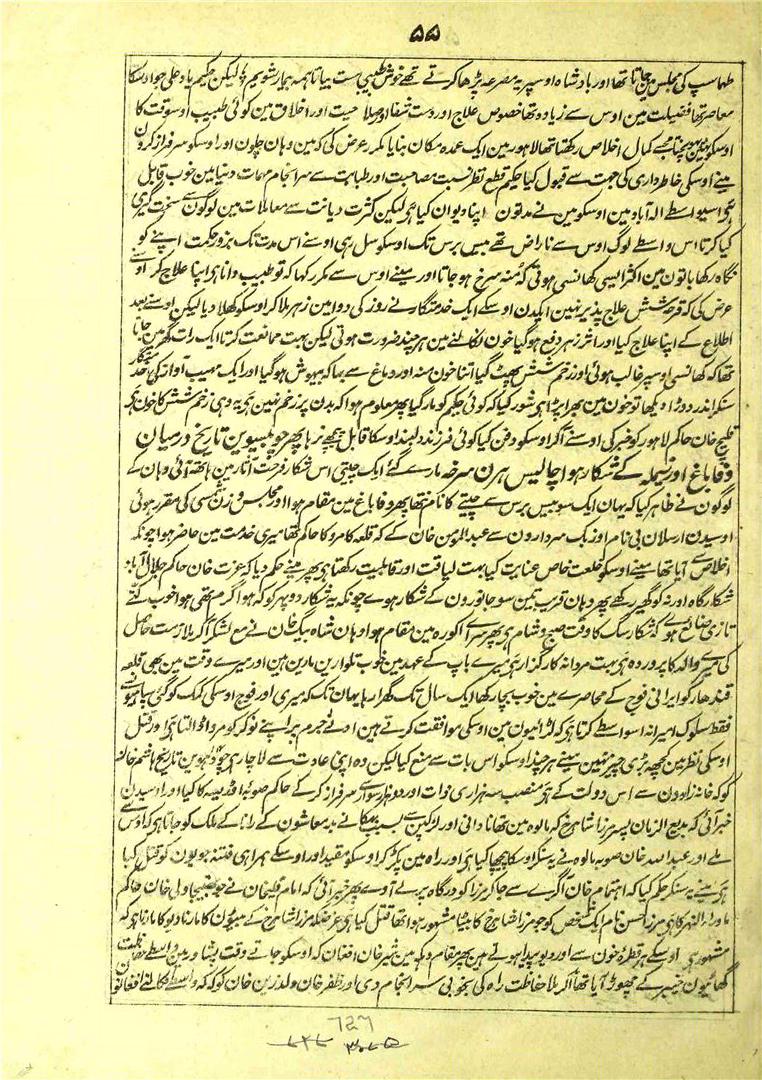 ۵۵
طہماسپ کی مجلس مین جاتا تھا اور بادشاہ اوسپر یہ مصرعہ پڑھا کرتے تھے خوش طبیبی ست بیا تا ہمہ بیمار شویم لیکن حکیم یاد علی جو اوسکا
معاصر تھا فضیلت مین اوس سے زیادہ تھا خصوص علاج اور دست شفا اور صلاحیت اور اخلاق مین کوئی طبیب اوسوقت کا
اوسکو نہین پہونچتا مجھے کمال اخلاص رکھتا تھا لاہور مین ایک عمدہ مکان بنایا مکرر عرض کی کہ مین وہان چلون اور اوسکو سرفراز کرون
مینے اوسکی خاطرداری کی جہت سے قبول کیا حکیم قطع نظر نسبت مصاحبت اور طبابت سے سرانجام مہمات دنیا مین خوب قابل
ہی اسیواسطے الہ آباد مین اوسکو مین نے مدتون اپنا دیوان کیا ہی لیکن کثرت دیانت سے معاملات مین لوگون سے سخت گیری
کیا کرتا اس واسطے لوگ اوس سے ناراض تھے بیس برس تک اوسکو سل رہی اوسنے اس مدت تک بزور حکمت اپنے کو
نگاہ رکھا باتون مین اکثر ایسی کھانسی ہوتی کہ منہ سرخ ہو جاتا اور مینے اوس سے مکرر کہا کہ تو طبیب دانا ہی اپنا علاج کر اوسنے
عرض کی کہ قرحہ شش علاج پذیر نہین ایکدن اوسکے ایک خدمتگار نے روز کی دوا مین زہر ملا کر اوسکو کھلا دیا لیکن اوسنے بعد
اطلاع کے اپنا علاج کیا اور اثر زہر دفع ہو گیا خون نکالنے مین ہر چند ضرورت ہوتی لیکن بہت ممانعت کرتا ایک رات گھر مین جاتا
تھا کہ کھانسی اوسپر غالب ہوئی اور زخم شش پھٹ گیا اتنا خون منہ اور دماغ سے بہا کہ بیہوش ہو گیا اور ایک مہیب آواز کی خدمتگار
سنکر اندر دوڑا دیکھا تو خون مین بھرا پڑا ہی شور کیا کہ کوئی حکیم کو مار گیا پھر معلوم ہوا کہ بدن پر زخم نہین ہی یہ وہی زخم شش کا خون ہی
قلیچ خان حاکم لاہور کو خبر کی اوسنے آ کر اوسکو دفن کیا کوئی فرزند دلبند اوسکا قابل پیچھے نرہا پھر چوبیسوین تاریخ درمیان
وفا باغ اور نیملہ کے شکار ہوا چالیس ہرن سرخہ مارے گئے ایک چیتی اس شکار فرحت آثار مین ہاتھ آئی وہان کے
لوگون نے ظاہر کیا کہ یہان ایک سو بیس برس سے چیتے کا نام نتھا پھر وفا باغ مین مقام ہوا اور مجلس وزن شمسی کی مقرر ہوئی
اوسیدن ارسلان بی نام اوزبک سردارون سے عبدالمومن خان کے کہ قلعہ کا مرد کا حاکم تھا میری خدمت مین حاضر ہوا چونکہ
اخلاص سے آیا تھا مینے اوسکو خلعت خاص عنایت کیا بہت لیاقت اور قابلیت رکھتا ہی پھر مینے حکم دیا کہ عزت خان حاکم جلال آباد
شکارگاہ ارنہ کو گھیر رکھے پھر وہان قریب تین سو جانورون کے شکار ہوے چونکہ یہ شکار دوپہر کو کہ ہوا گرم تھی ہوا خوب کتے
تازی ضائع ہوے کہ شکار سگ کا وقت صبح و شام ہی پھر سراے اکورہ مین مقام ہوا وہان شاہ بیگ خان نے مع لشکر آ کر ملازمت حاصل
کی میرے والد کا پروردہ ہی بہت مردانہ کارگذار ہی میرے باپ کے عہد مین خوب تلوارین مارین ہین اور میرے وقت مین بھی قلعہ
قندھار کو ایرانی فوج کے محاصرے مین خوب بچا رکھا ایک سال تک گھرا رہا یہان تک کہ میری اور فوج اوسکی کمک کو گئی سپاہیون سے
فقط سلوک امیرانہ اسواسطے کرتا ہی کہ لڑائیون مین اوسکی موافقت کرتے ہین ادنے جرم پر اپنے نوکر کو مروا ڈالتا ہی اور قتل
اوسکی نظر مین کچھ بڑی چیز نہین مینے ہر چند اوسکو اس بات سے منع کیا لیکن وہ اپنی عادت سے لاچار ہی چودھوین تاریخ ہاشم خان
کو کہ خانہ زادون سے اس دولت کے ہی منصب سہ ہزاری ذات اور دو ہزار سوار سرفراز کرکے حاکم صوبہ اوڈیسہ کا کیا اور اوسیدن
خبر آئی کہ بدیع الزمان پسر مرزا شاہرخ کہ مالوہ مین تھا نادانی اور لڑکپن سے بسبب بہکانے بدمعاشون کے رانا کے ملک کو جاتا ہی کہ اوس سے
ملے اور عبداللہ خان صوبہ مالوہ نے یہ سنکر اوسکا پیچھا کیا ہی اور راہ مین پکڑ کر اوسکو مقید اور اوسکے ہمراہی فتنہ جویون کو قتل کیا
ہی مینے یہ سنکر حکم کیا کہ اہتمام خان آگرے سے جا کر مرزا کو درگاہ پر لے آوے پھر خبر آئی کہ امام قلیخان نے جو بھتیجا ولی خان حاکم
ماوراء النہر کا ہی مرزا حسن نام ایک شخص کو جو مرزا شاہرخ کا بیٹا مشہور ہوا تھا قتل کیا ہی غرضکہ مرزا شاہرخ کے بیٹون کا مارنا دیو کا مارنا ہی کہ
مشہور ہی اوسکے ہر قطرۂ خون سے اور دیو پیدا ہوتے ہین پھر مقام دہکہ مین شیرخان افغان کہ اوسکو جاتے وقت پشاور مین واسطے حفاظت
گھاٹیون خیبر کے چھوڑ آیا تھا آ کر ملا حفاظت راہ کی بخوبی سرانجام دی اور ظفر خان ولد زین خان کوکہ کہ واسطے نکالنے افغانون
727